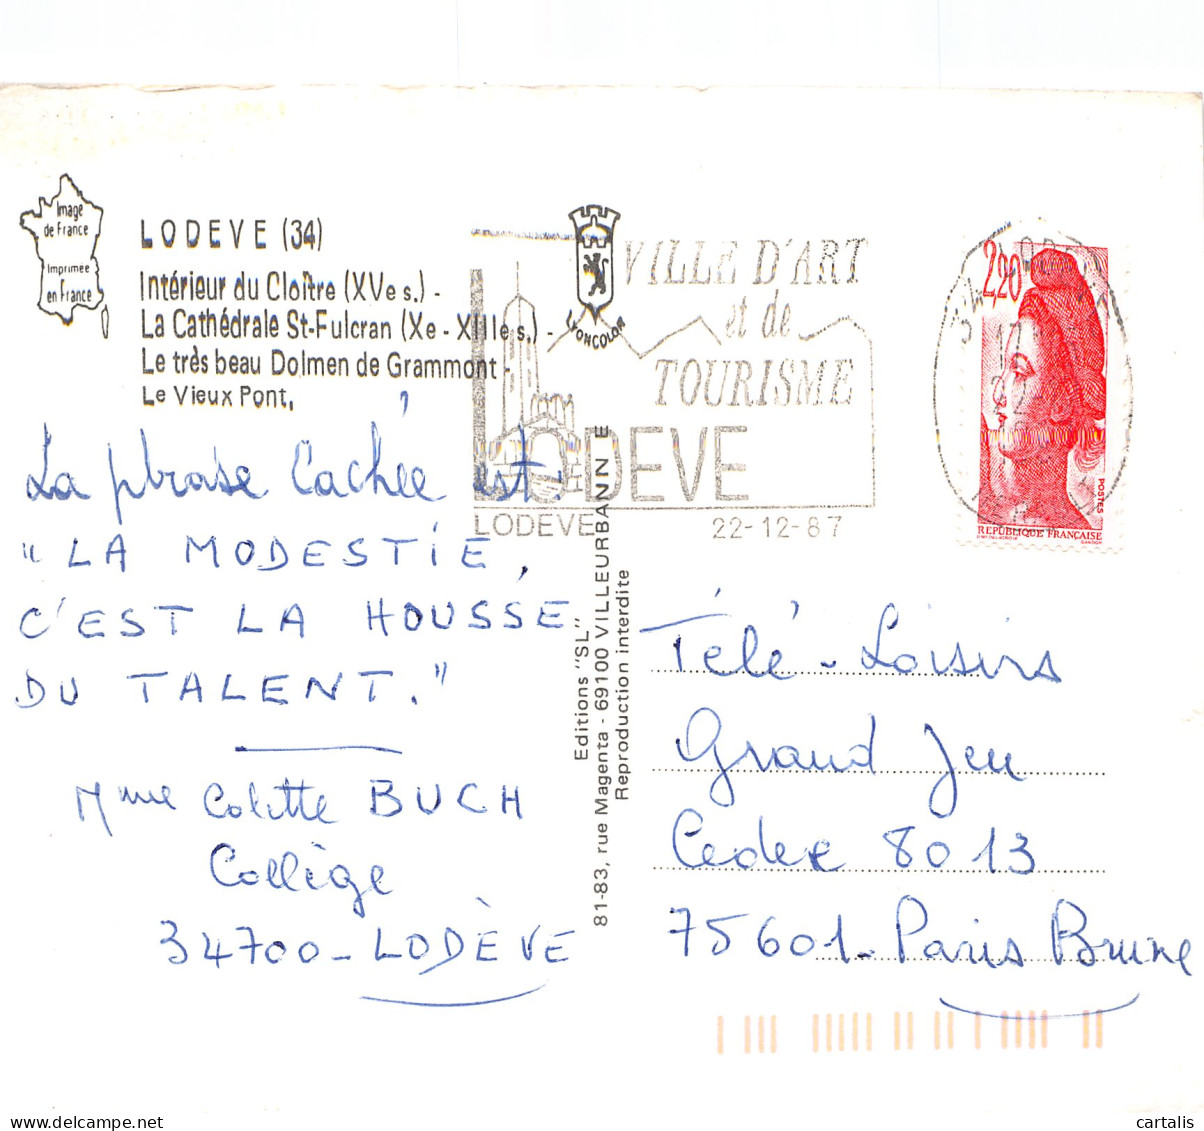 Image
de France
Imprimée
en France
LODEVE (34)
Intérieur du Cloître (XVe s.) -
La Cathédrale St-Fulcran (Xe - XIIIe s.) -
Le très beau Dolmen de Grammont -
Le Vieux Pont,
LYONCOLOR
VILLE D'ART
et de
TOURISME
LODEVE
LODEVE
22-12-87
2,20
POSTES
REPUBLIQUE FRANCAISE
La phrase Cachée est :
"LA MODESTIE,
C'EST LA HOUSSE
DU TALENT."
Mme Colette BUCH
Collège
34700 - LODÈVE
Editions "SL"
81-83, rue Magenta - 69100 VILLEURBANNE
Reproduction interdite
Télé - Loisirs
Grand Jeu
Cedex 8013
75601 - Paris Brune
cartalis